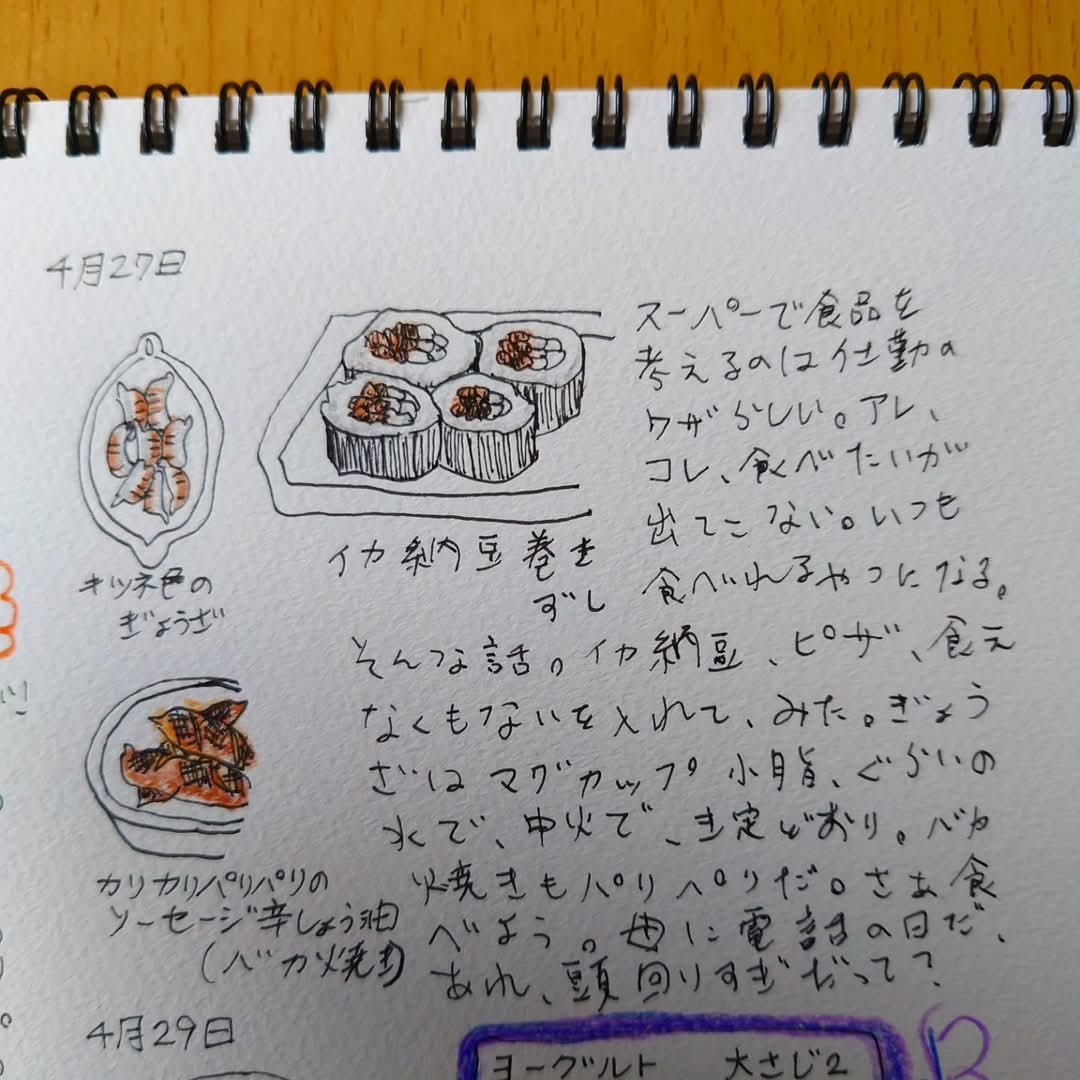 4月27日
キツネ色の
ぎょうざ
イカ納豆巻き
ずし
スーパーで食品を
考えるのは仕勤の
ワザらしい。アレ、
コレ、食べたいが
出てこない。いつも
食べれるやつになる。
そんな話。イカ納豆、ピザ、食え
なくもないを入れて、みた。ぎょう
ざはマグカップ小指、ぐらいの
水で、中火で、き定どおり。バカ
焼きもパリパリだ。さぁ食
べよう。母に電話の日だ、
あれ、頭回りすぎだって?
カリカリパリパリの
ソーセージ辛しょう油
(バカ焼き)
4月29日
ヨーグルト 大さじ2